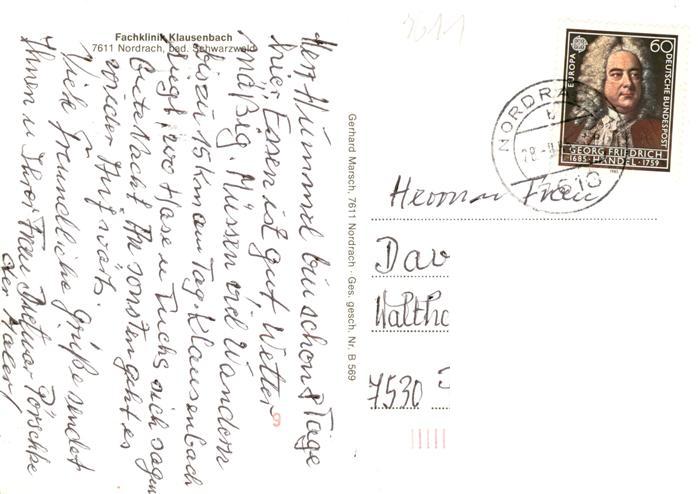 Fachklinik Klausenbach
7611 Nordrach, bad. Schwarzwald
Herr Hummel bin schon 8 Tage
hier. Essen ist gut Wetter
mäßig. Müssen viel Wandern
bis zu 15 km am Tag. Klausenbach
liegt, wo Hase u Fuchs sich sagen
Gute Nacht. Ansonsten geht es
wieder Aufwärts.
Viele freundliche Grüße sendet
Ihnen u Ihrer Frau Dietmar Pörschke
der Maler!
Gerhard Marsch, 7611 Nordrach · Ges. gesch. Nr. B 569
EUROPA
60
DEUTSCHE BUNDESPOST
GEORG FRIEDRICH
1685 · HÄNDEL · 1759
NORDRA
Herrn u Frau
Dav
Waltho
7530